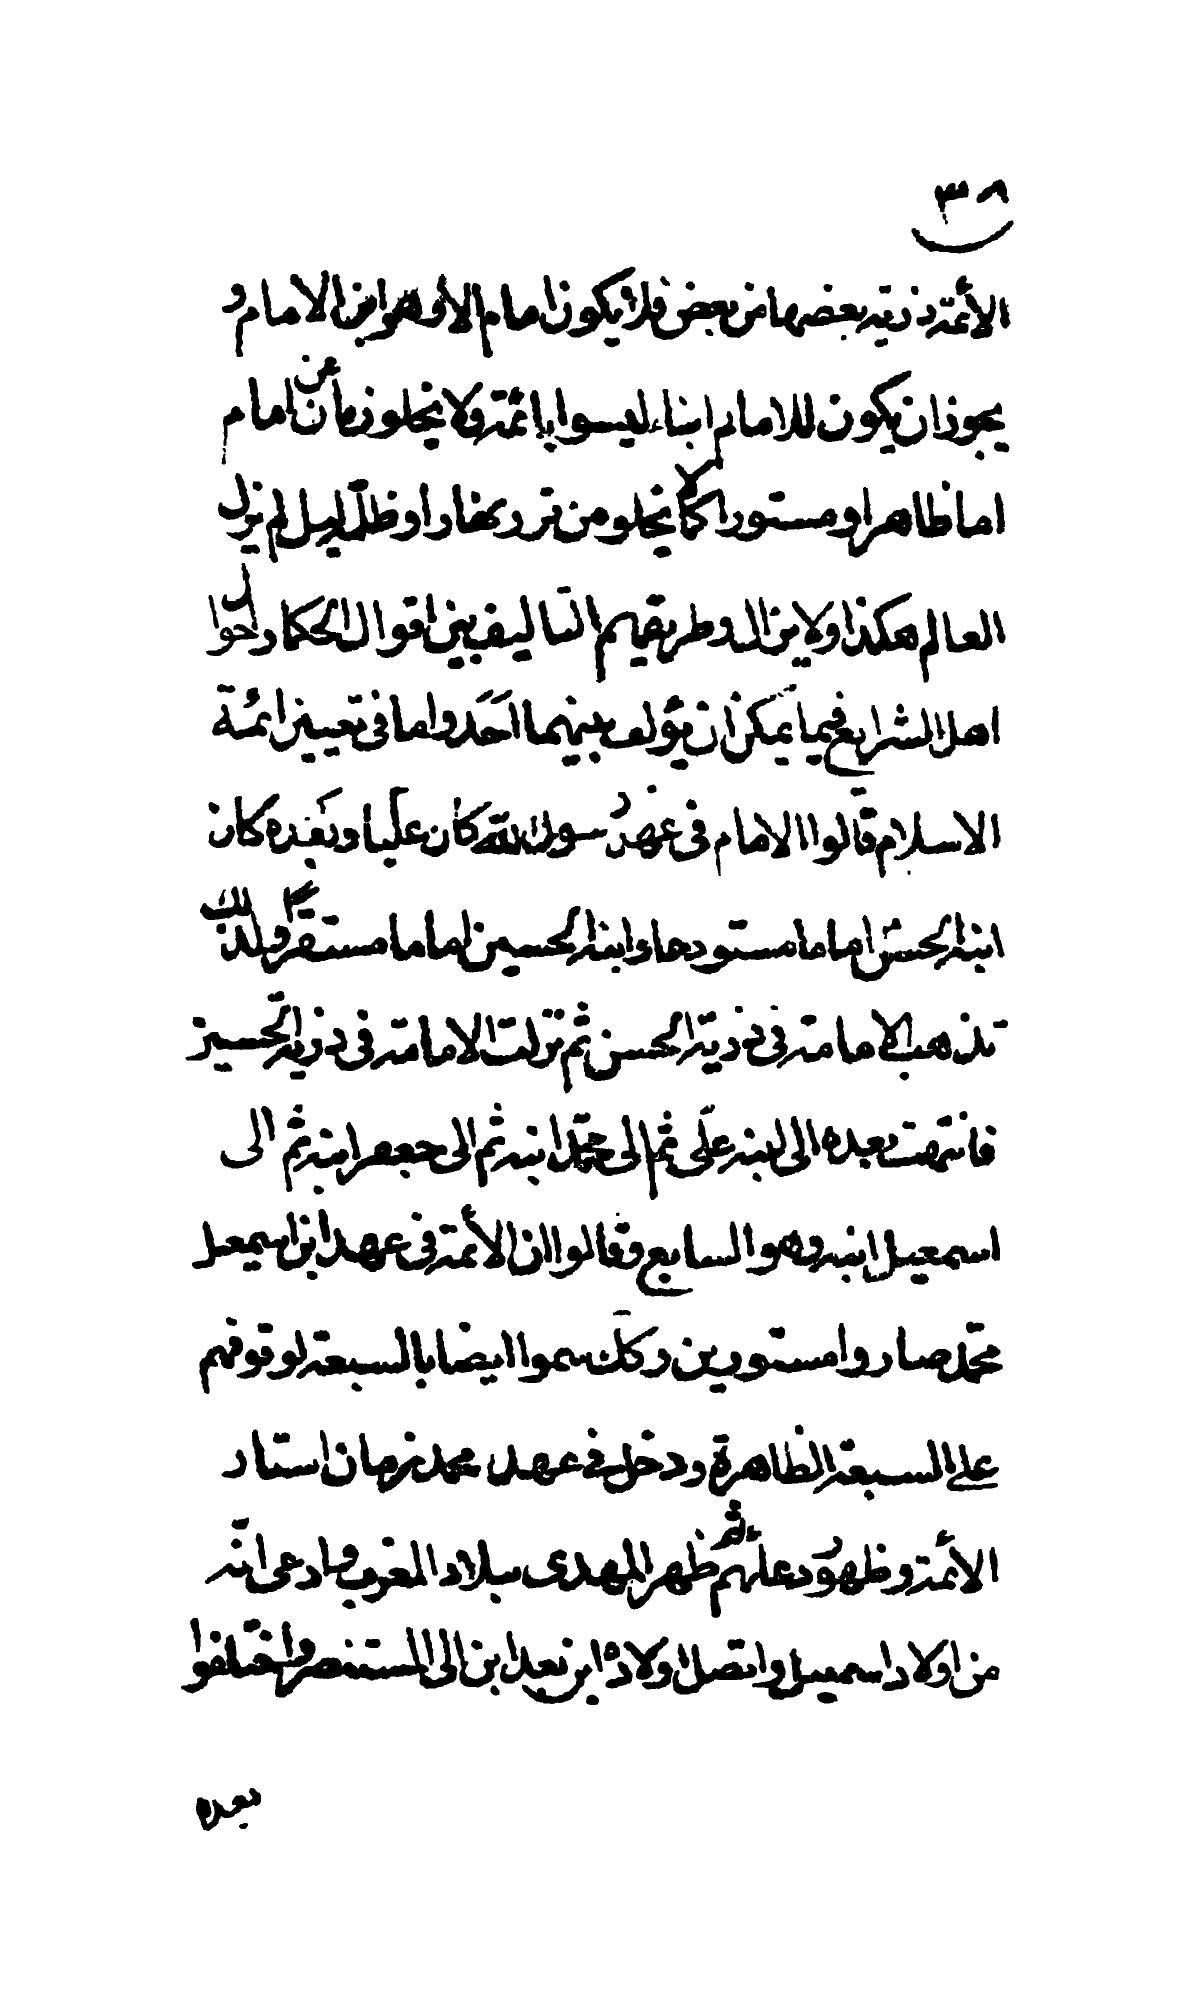 ٣٨
الأئمة ذرية بعضها من بعض فلا يكون امام الا وهو ابن الامام و
يجوز ان يكون للامام ابناء ليسوا بائمة ولا يخلو زمان من امام
اما ظاهرا و مستورا كما لا يخلو من نور نهارا و ظلمة ليل لم يزل
العالم هكذا ولا يزال وطريقهم التاليف بين اقوال الحكما واحوا
اهل الشرايع فيما يمكن ان يؤلف بينهما احد واما في تعيين ائمة
الاسلام قالوا الامام في عهد رسول الله كان عليا وبعده كان
ابنه الحسن اماما مستودعا وابنه الحسين اماما مستقرا ولذلك لم
تذهب الامامة في ذرية الحسن ثم نزلت الامامة في ذرية الحسين
فانتهت بعده الى ابنه علي ثم الى محمد ابنه ثم الى جعفر ابنه ثم الى
اسمعيل ابنه وهو السابع وقالوا ان الأئمة في عهد ابن اسمعيل
محمد صاروا مستورين ولذلك سموا ايضا بالسبعة لوقوفهم
على السبعة الظاهرة ودخل في عهد محمد زمان استتار
الأئمة وظهور دعاتهم ثم ظهر المهدى ببلاد المغرب وادعى انه
من اولاد اسمعيل واتصل اولاده ابن بعد ابن الى المستنصر واختلفوا
بعده